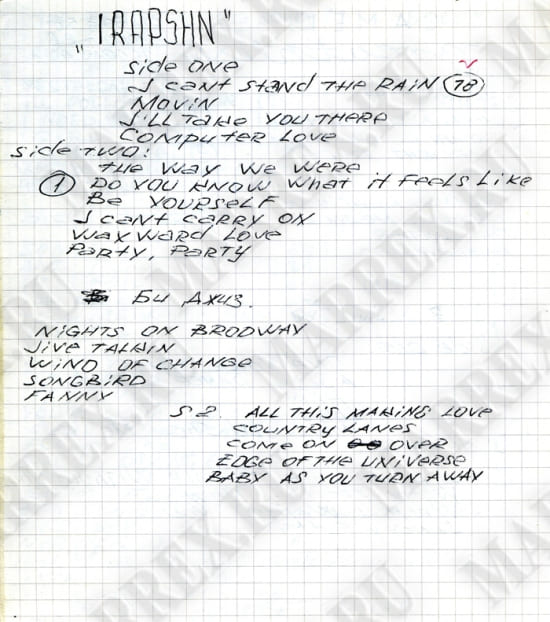 "IRAPSHN"
Side ONE
I CANT STAND THE RAIN 78
MOVIN
I'LL TAKE YOU THERE
COMPUTER LOVE
Side TWO:
THE WAY WE WERE
1 DO YOU KNOW WHAT iT FEELS LIKE
BE YOURSELF
I CANT CARRY ON
WAYWARD LOVE
PARTY, PARTY
Би Джиз.
NIGHTS ON BRODWAY
JIVE TALKIN
WIND OF CHANGE
SONGBIRD
FANNY
S 2. ALL THIS MAKING LOVE
COUNTRY LANES
COME ON OVER
EDGE OF THE UNIVERSE
BABY AS YOU TURN AWAY
MARREX.RU